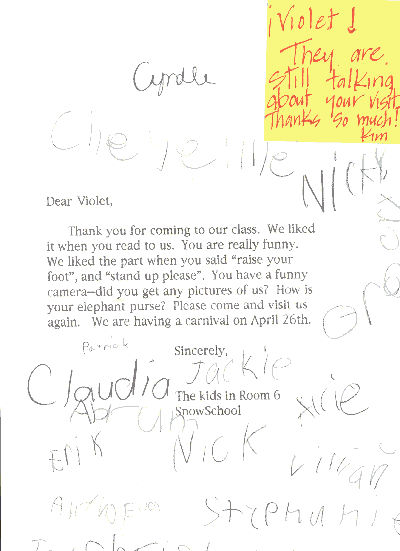 ¡Violet!
They are
still talking
about your visit
Thanks so much!
Kim
Cyrdle
Nicky
Dear Violet,
Thank you for coming to our class. We liked
it when you read to us. You are really funny.
We liked the part when you said "raise your
foot", and "stand up please". You have a funny
camera—did you get any pictures of us? How is
your elephant purse? Please come and visit us
again. We are having a carnival on April 26th.
Patrick
Sincerely,
Jackie
Claudia
The kids in Room 6
SnowSchool
Erik
Nick
Vivian
Stephanie